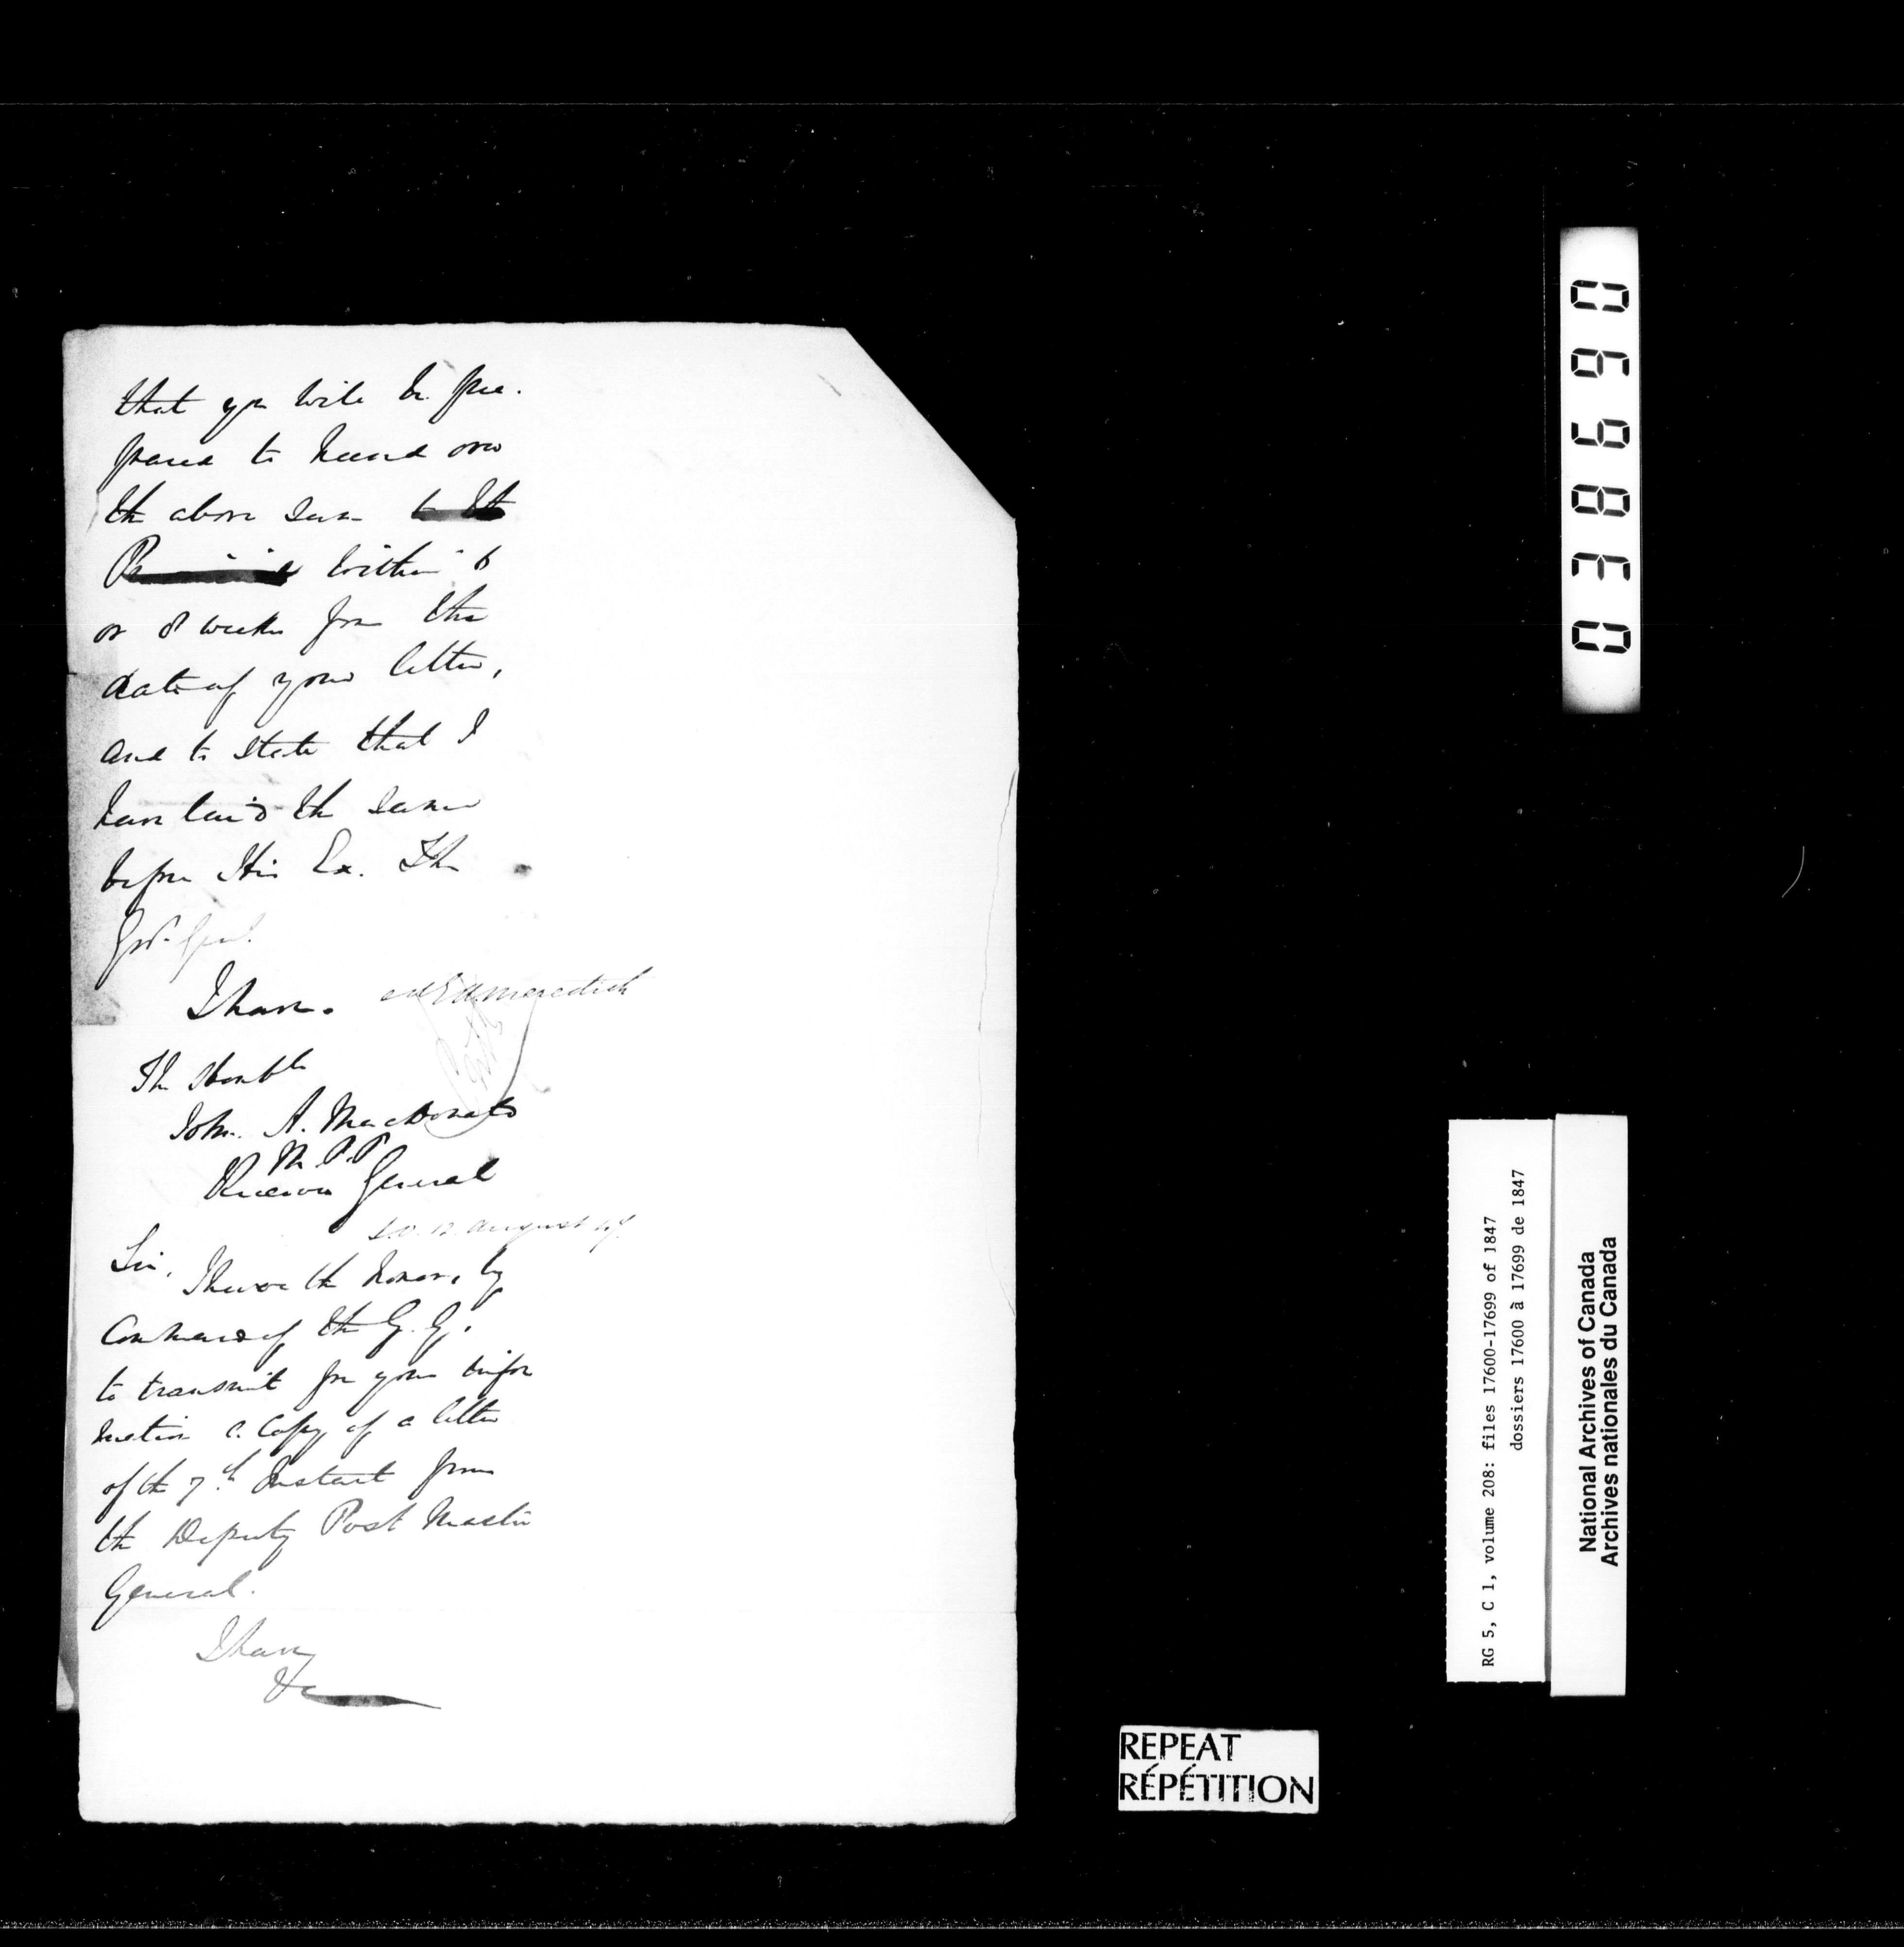 that you will be pre-
pared to hand over
the above sum to the
within 6
or 8 weeks from the
date of your letter,
and to state that I
have laid the same
before His Ex. The
Govr. Genl.
I have.
Meredith
The Honble
John. A. MacDonald
M.P.P
Receiver General
S.O. 12. August 47.
Sir,
I have the honor, by
Command of the G. G.
to transmit for your infor
mation a Copy of a letter
of the 7th Instant from
the Deputy Post Master
General.
I have
&c
036990
RG 5, C 1, volume 208: files 17600-17699 of 1847
dossiers 17600 à 17699 de 1847
National Archives of Canada
Archives nationales du Canada
REPEAT
RÉPÉTITION